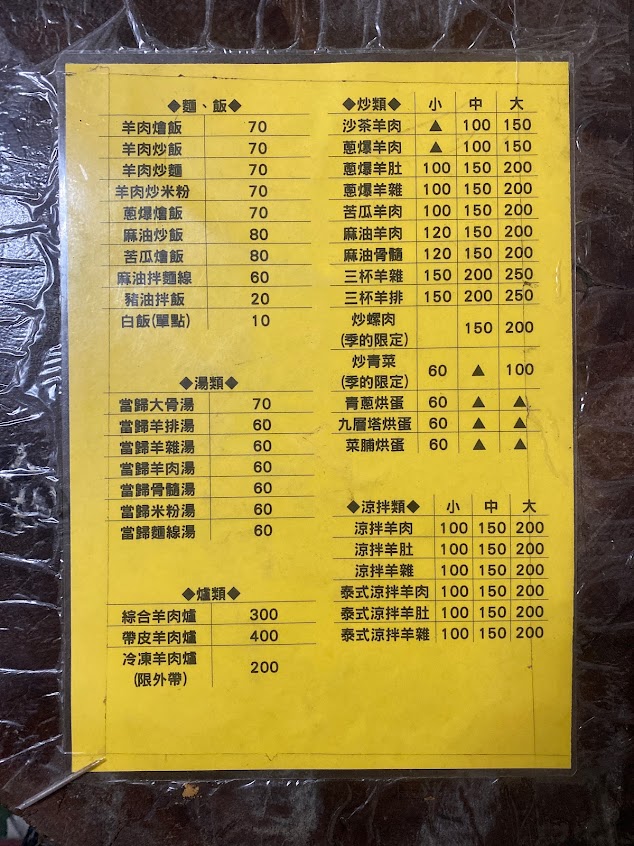 ◆麵、飯◆
羊肉燴飯 70
羊肉炒飯 70
羊肉炒麵 70
羊肉炒米粉 70
蔥爆燴飯 70
麻油炒飯 80
苦瓜燴飯 80
麻油拌麵線 60
豬油拌飯 20
白飯(單點) 10
◆湯類◆
當歸大骨湯 70
當歸羊排湯 60
當歸羊雜湯 60
當歸羊肉湯 60
當歸骨髓湯 60
當歸米粉湯 60
當歸麵線湯 60
◆爐類◆
綜合羊肉爐 300
帶皮羊肉爐 400
冷凍羊肉爐 200
(限外帶)
◆炒類◆ 小 中 大
沙茶羊肉 ▲ 100 150
蔥爆羊肉 ▲ 100 150
蔥爆羊肚 100 150 200
蔥爆羊雜 100 150 200
苦瓜羊肉 100 150 200
麻油羊肉 120 150 200
麻油骨髓 120 150 200
三杯羊雜 150 200 250
三杯羊排 150 200 250
炒螺肉 150 200
(季的限定)
炒青菜 60 ▲ 100
(季的限定)
青蔥烘蛋 60 ▲ ▲
九層塔烘蛋 60 ▲ ▲
菜脯烘蛋 60 ▲ ▲
◆涼拌類◆ 小 中 大
涼拌羊肉 100 150 200
涼拌羊肚 100 150 200
涼拌羊雜 100 150 200
泰式涼拌羊肉 100 150 200
泰式涼拌羊肚 100 150 200
泰式涼拌羊雜 100 150 200